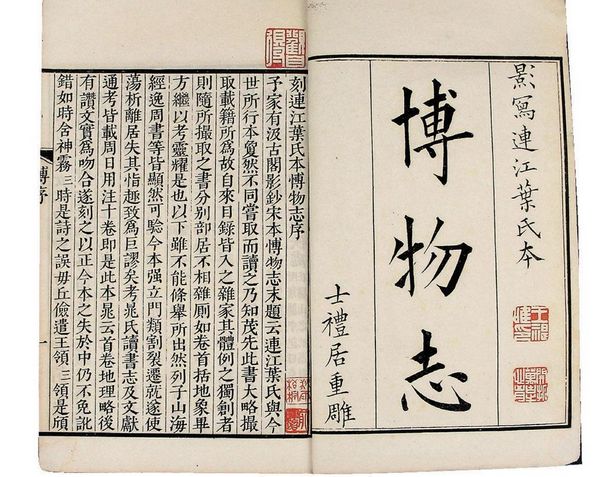 影寫連江葉氏本
博物志
士禮居重雕
刻連江葉氏本博物志序
予家有汲古閣影鈔宋本博物志末題云連江葉氏與今
世所行本夐然不同嘗取而讀之乃知茂先此書大略撮
取載籍所爲故自來目錄皆入之雜家其體例之獨創者
則隨所撮取之書分別部居不相雜厠如卷首括地象畢
方繼以考靈耀是也以下雖不能條舉所出然列子山海
經逸周書等皆顯然可驗今本强立門類割裂遷就遂使
蕩析離居失其恉趣致爲巨謬矣考晁氏讀書志及文獻
通考皆載周日用注十卷即是此本晁云首卷地理略後
有讚文實爲吻合遂刻之以正今本之失於中仍不免訛
錯如時含神霧三時是詩之誤毋丘儉遣王領三領是頎
博序
一